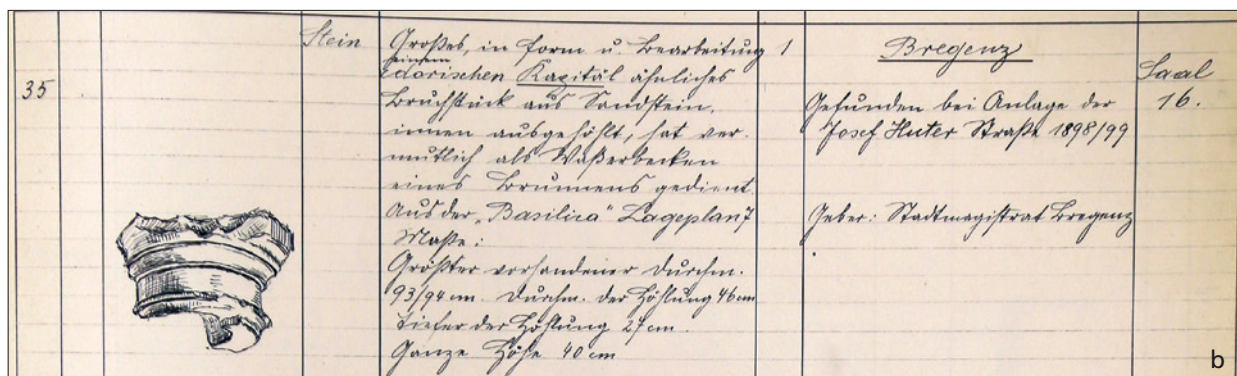 35
Stein
Großes, in Form u. Bearbeitung
einem
dorischen Kapitäl ähnliches
Bruchstück aus Sandstein,
innen ausgehöhlt, hat ver-
mutlich als Waßerbecken
eines Brunnens gedient.
Aus der „Basilica" Lageplan 7
Maße:
Größter vorhandener Durchm.
93/94 cm. Durchm. der Höhlung 46 cm
Tiefe der Höhlung 27 cm.
Ganze Höhe 40 cm
1
Bregenz
Gefunden bei Anlage der
Josef Huter Straße 1898/99
Geber: Stadtmagistrat Bregenz
Saal
16.
b